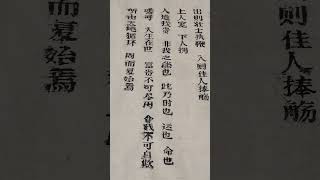 出则壮士执鞭 入则佳人捧觞
上人宠 下人拥
人道我贵 非我之能也 此乃时也 运也 命也
嗟呼 人生在世 富贵不可尽用 贫贱不可自欺
听由天地循环 周而复始焉